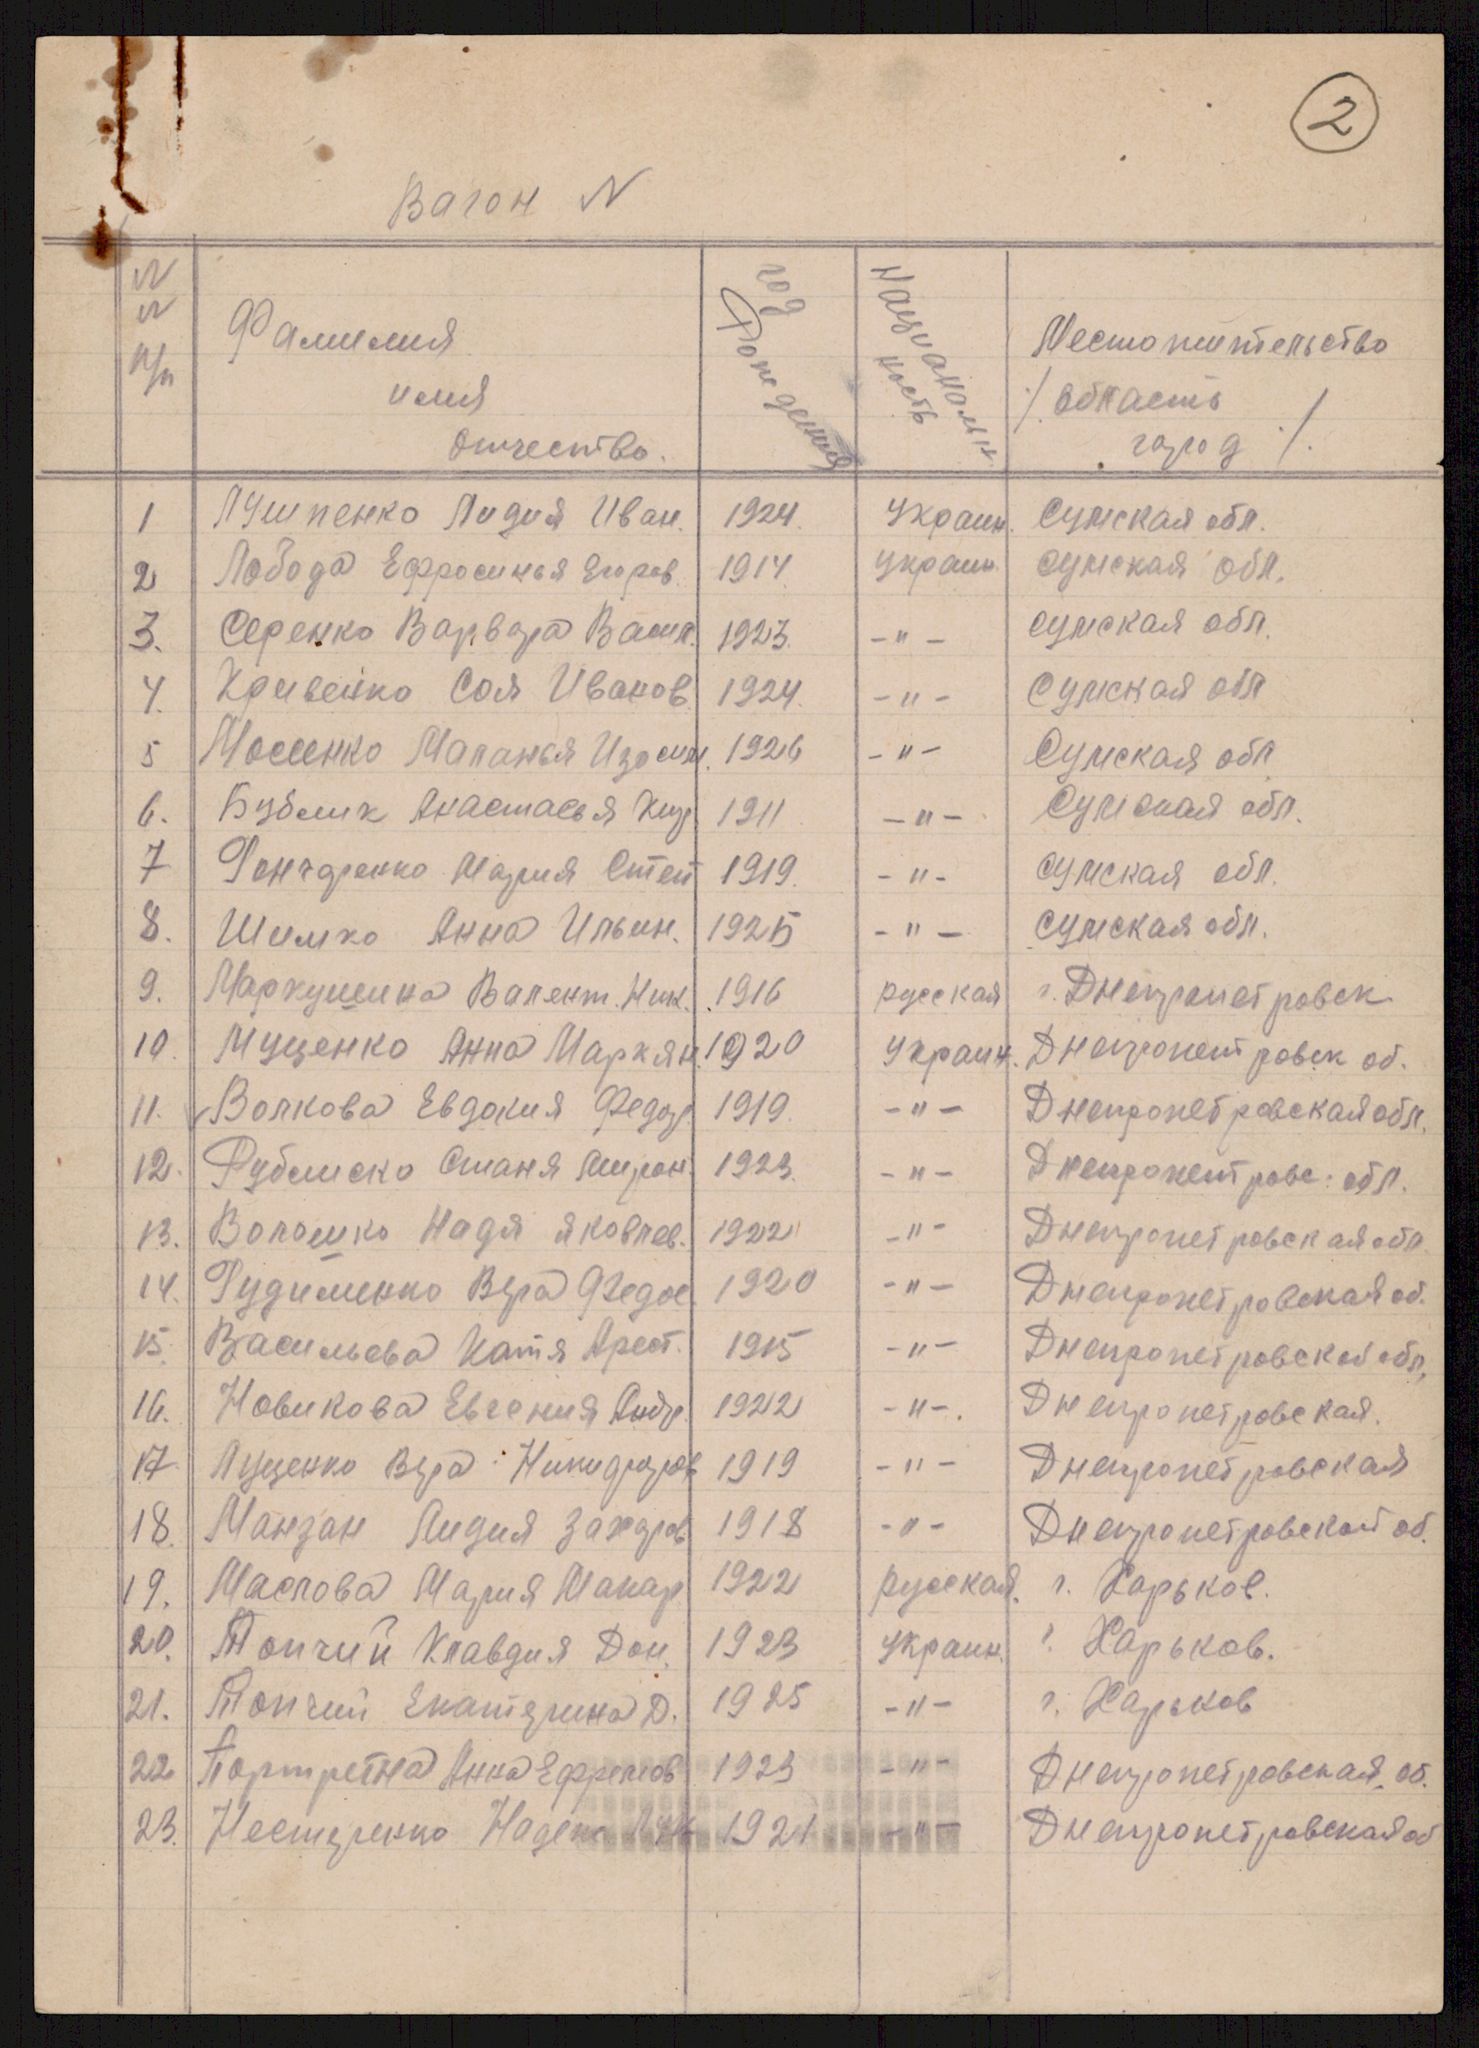 2
Вагон N
N N п/п
Фамилия имя отчество.
год рождения
Национальность
Местожительство /область город/.
1 Лушпенко Лидия Иван. 1924. Украин. Сумская обл.
2 Лобода Ефросинья Егоров. 1914. Украин. Сумская обл.
3. Серенко Варвара Васил. 1923. -"- Сумская обл.
4. Кривенко Соя Иванов. 1924. -"- Сумская обл
5 Мосенко Маланья Изосим. 1926 -"- Сумская обл
6. Бублик Анастасья 1911 -"- Сумская обл.
7 Гончаренко Мария Степ 1919. -"- Сумская обл.
8. Шимко Анна Ильин. 1925 -"- Сумская обл.
9. Маркушина Валент. Ник. 1916 русская г. Днепропетровск
10. Муценко Анна Маркян. 1920 Украин. Днепропетровск об.
11. Волкова Евдокия Федор. 1919. -"- Днепропетровская обл.
12. Рублиско Станя Мирон. 1923. -"- Днепропетровс. обл.
13. Волошко Надя Яковлев. 1922 -"- Днепропетровская обл.
14. Гудименко Вера Федос. 1920 -"- Днепропетровская об.
15. Васильева Катя Арест. 1915 -"- Днепропетровской обл,
16. Новикова Евгения Андр. 1922 -"-. Днепропетровская.
17 Луценко Вера Никифоров 1919 -"- Днепропетровская
18. Манзан Лидия Захаров 1918 -"- Днепропетровской об.
19. Маслова Мария Макар 1922 русская. г. Харьков.
20. Топчий Клавдия Дон. 1923 Украин. г. Харьков.
21. Топчий Екатерина Д. 1925 -"- г. Харьков
22 Портретна Анна Ефремов 1923 -"- Днепропетровская об.
23. Нестеренко Надежа 1921 -"- Днепропетровская об